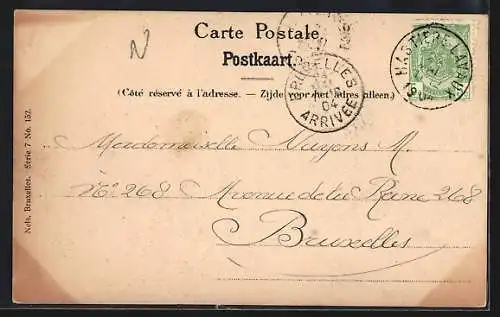 N
Carte Postale
Postkaart.
(Côté réservé à l'adresse. — Zijde voor het adres alleen.)
BRUXELLES
04
ARRIVÉE
HASTIERE-LAVAUX
04
Nels, Bruxelles. Série 7 No. 152.
Mademoiselle Nuyons M.
N° 268 Avenue de la Reine 268
Bruxelles